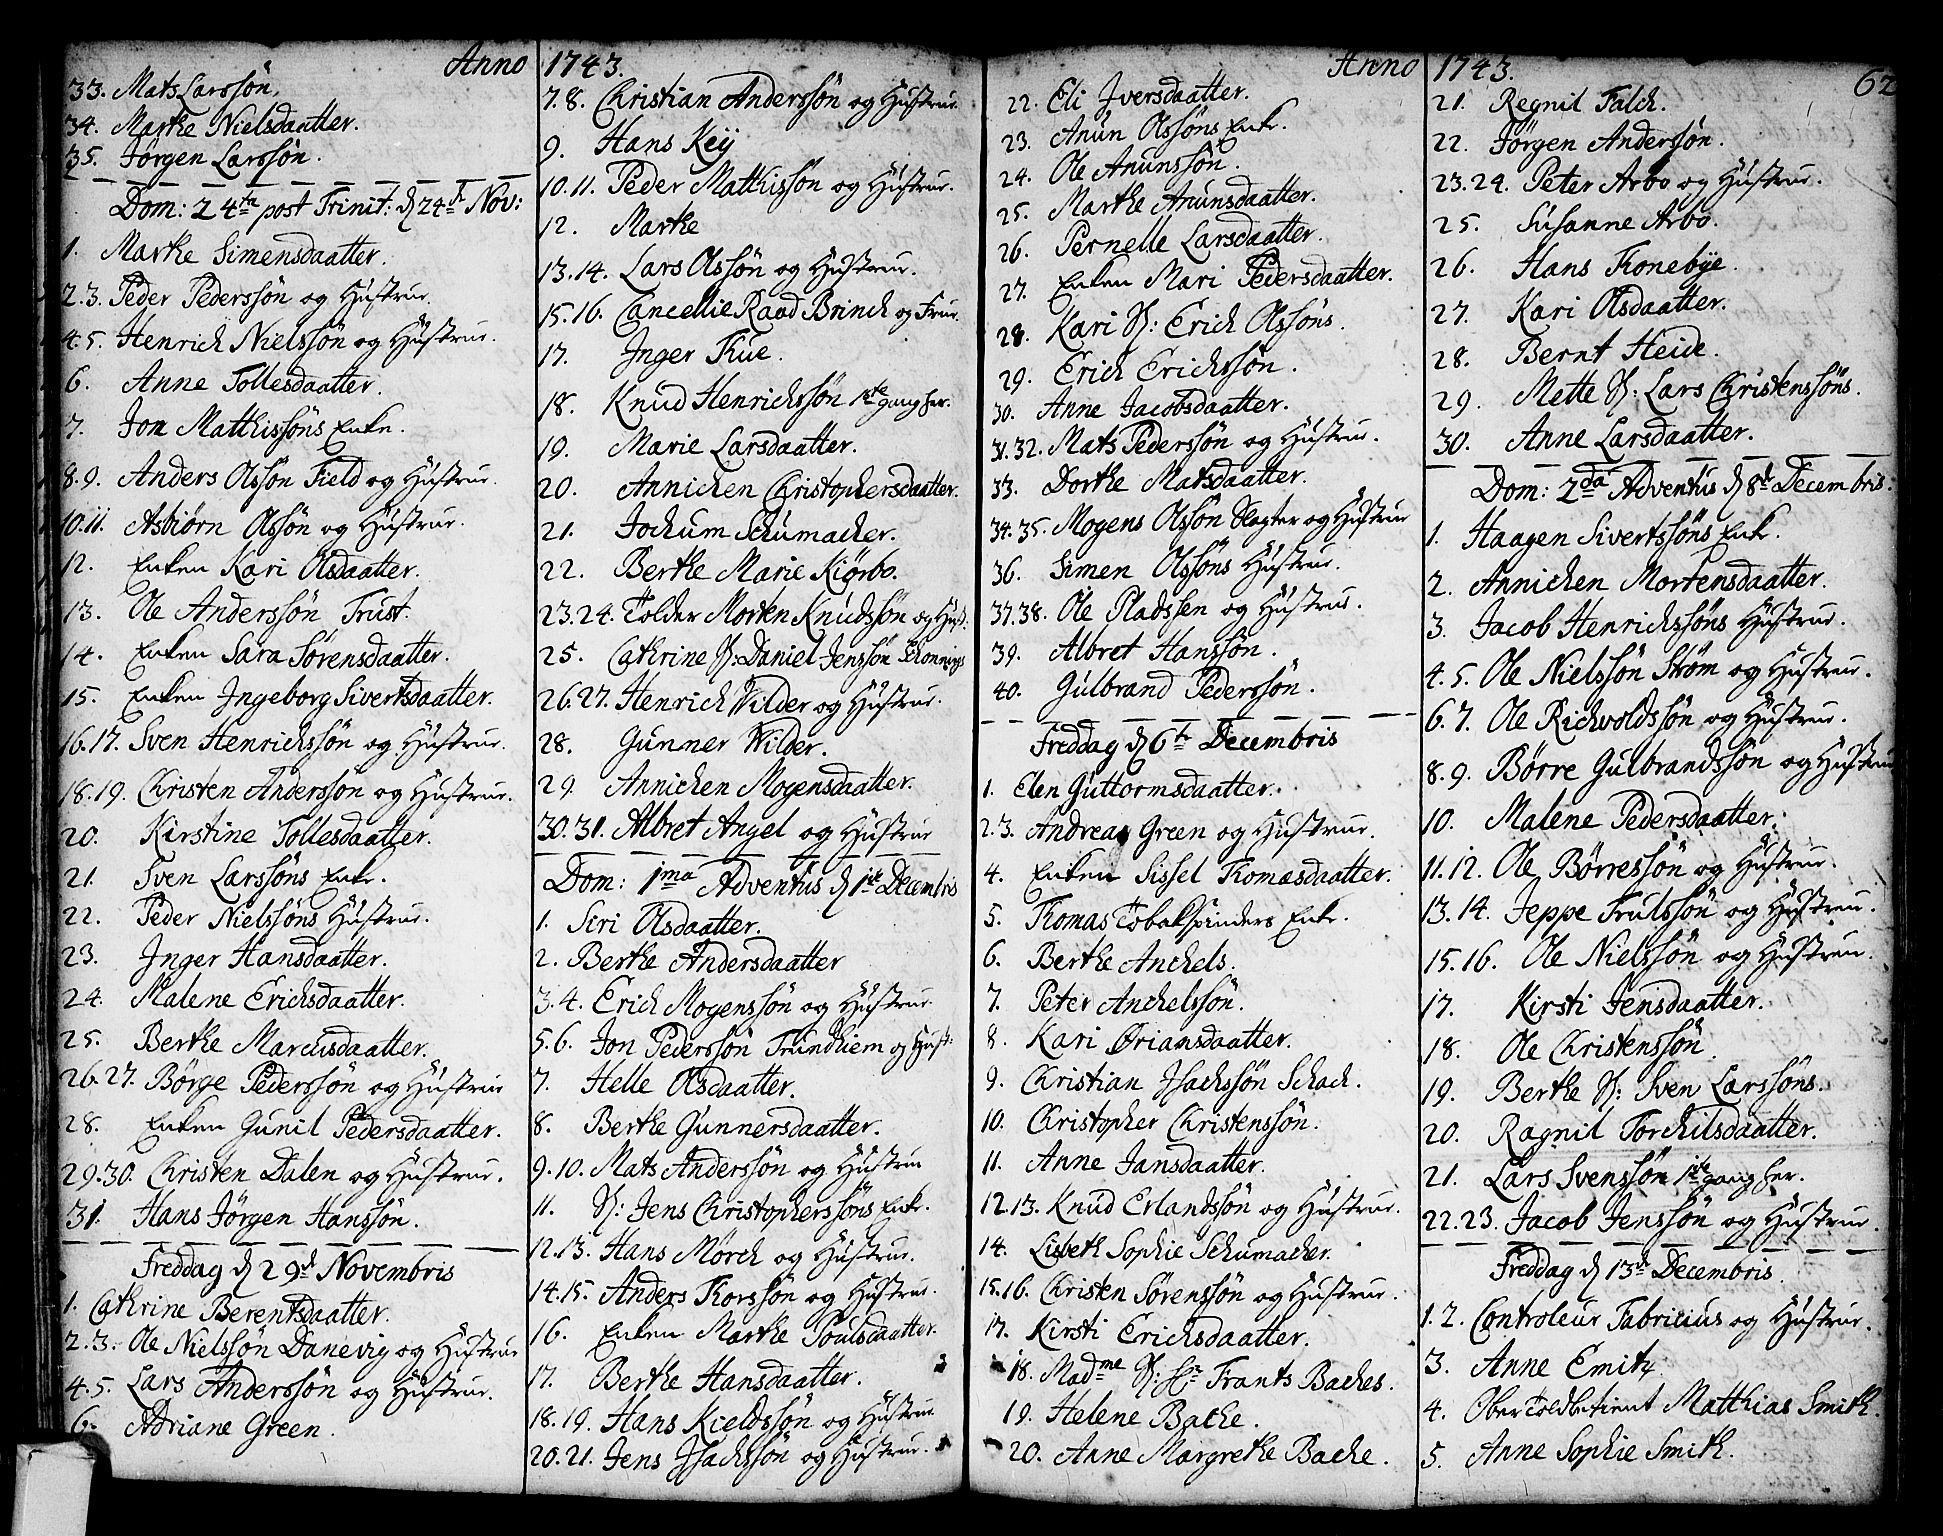 Anno
33. Mats Larssøn.
34. Marthe Nielsdaatter.
35. Jørgen Larssøn.
Dom: 24de post Trinit: d 24de Nov:
1. Marthe Simensdaatter.
2.3. Peder Pederssøn og Hustrue.
4.5. Henrich Nielssøn og Hustrue.
6. Anne Tollesdaatter.
7. Jon Matthissøns Enke.
8.9. Anders Olssøn Field og Hustrue.
10.11. Asbiørn Olssøn og Hustrue.
12. Enken Kari Olsdaatter.
13. Ole Anderssøn Trust.
14. Enken Sara Sørensdaatter.
15. Enken Ingeborg Sivertsdaatter.
16.17. Sven Henrichssøn og Hustrue.
18.19. Christen Anderssøn og Hustrue.
20. Kirstine Tollesdaatter.
21. Sven Larssøns Enke.
22. Peder Nielssøns Hustrue.
23. Inger Hansdaatter.
24. Malene Erichsdaatter.
25. Berthe Marchsdaatter.
26.27. Børge Pederssøn og Hustrue
28. Enken Gunil Pedersdaatter.
29.30. Christen Dalen og Hustrue.
31. Hans Jørgen Hanssøn.
Freddag d 29de Novembris
1. Cathrine Berentsdaatter.
2.3. Ole Nielssøn Danevig og Hustrue
4.5. Lars Anderssøn og Hustrue.
6. Adriane Green.
1743.
7.8. Christian Anderssøn og Hustrue.
9. Hans Keÿ
10.11. Peder Matthissøn og Hustrue.
12. Marthe
13.14. Lars Olssøn og Hustrue.
15.16. Cancellie Raad Brinch og Frue.
17. Inger Thue.
18. Knud Henrichssøn 1ste gang her.
19. Marie Larsdaatter.
20. Annichen Christophersdaatter.
21. Jochum Schumacher.
22. Berthe Marie Kiørbo.
23.24. Tolder Morten Knudssøn og Hust.
25. Cathrine S: Daniel Jenssøn Schonnings
26.27. Henrich Wilder og Hustrue.
28. Gunner Wilder.
29. Annichen Mogensdaatter.
30.31. Albret Angel og Hustrue
Dom: 1ma Adventus d 1ste Decembris
1. Siri Olsdaatter.
2. Berthe Andersdaatter
3.4. Erich Mogenssøn og Hustrue
5.6. Jon Pederssøn Trundhiem og Hust:
7. Helle Olsdaatter.
8. Berthe Gunnersdaatter.
9.10. Mats Anderssøn og Hustrue
11. S: Jens Christopherssøns Enke.
12.13. Hans Mørch og Hustrue.
14.15. Anders Thorssøn og Hustrue.
16. Enken Marthe Poulsdaatter.
17. Berthe Hansdaatter.
18.19. Hans Kieldssøn og Hustrue
20.21. Jens Isachssøn og Hustrue.
Anno
22. Eli Iversdaatter.
23. Anun Olssøns Enke.
24. Ole Anunssøn.
25. Marthe Anunsdaatter.
26. Pernelle Larsdaatter.
27. Enken Mari Pedersdaatter.
28. Kari S: Erich Olssøns.
29. Erich Erichssøn.
30. Anne Jacobsdaatter.
31.32. Mats Pederssøn og Hustrue.
33. Dorthe Matsdaatter.
34.35. Mogens Olssøn Slagter og Hustrue
36. Simen Olssøns Hustrue.
37.38. Ole Pladssen og Hustrue.
39. Albret Hanssøn.
40. Gulbrand Pederssøn.
Freddag d 6te Decembris
1. Elen Guttormsdaatter.
2.3. Andreas Green og Hustrue.
4. Enken Sissel Thomasdaatter.
5. Thomas Tobakspinders Enke.
6. Berthe Anchels.
7. Peter Anchelssøn.
8. Kari Ørjansdaatter.
9. Christian Isachssøn Schach.
10. Christopher Christenssøn.
11. Anne Jansdaatter.
12.13. Knud Erlandssøn og Hustrue.
14. Lisbeth Sophie Schumacher.
15.16. Christen Sørenssøn og Hustrue.
17. Kirsti Erichsdaatter.
18. Madme S: Hr Frants Baches.
19. Helene Bache.
20. Anne Margrethe Bache.
1743.
62
21. Regnil Falch.
22. Jørgen Anderssøn.
23.24. Peter Arbo og Hustrue.
25. Susanne Arbo.
26. Hans Thonebÿe.
27. Kari Olsdaatter.
28. Bernt Heide.
29. Mette S: Lars Christenssøns.
30. Anne Larsdaatter.
Dom: 2da Adventus d 8de Decembris.
1. Haagen Sivertssøns Enke.
2. Annichen Mortensdaatter.
3. Jacob Henrichssøns Hustrue.
4.5. Ole Nielssøn Strøm og Hustrue.
6.7. Ole Richvoldssøn og Hustrue.
8.9. Børre Gulbrandssøn og Hustrue
10. Malene Pedersdaatter.
11.12. Ole Børressøn og Hustrue.
13.14. Jeppe Trulssøn og Hustrue.
15.16. Ole Nielssøn og Hustrue.
17. Kirsti Jensdaatter.
18. Ole Christenssøn.
19. Berthe S: Sven Larssøns.
20. Ragnil Torchilsdaatter.
21. Lars Svenssøn 1ste gang her.
22.23. Jacob Jenssøn og Hustrue.
Freddag d 13de Decembris.
1.2. Controleur Fabricius og Hustrue.
3. Anne Emitz.
4. Ober Toldbetient Matthias Smith.
5. Anne Sophie Smith.